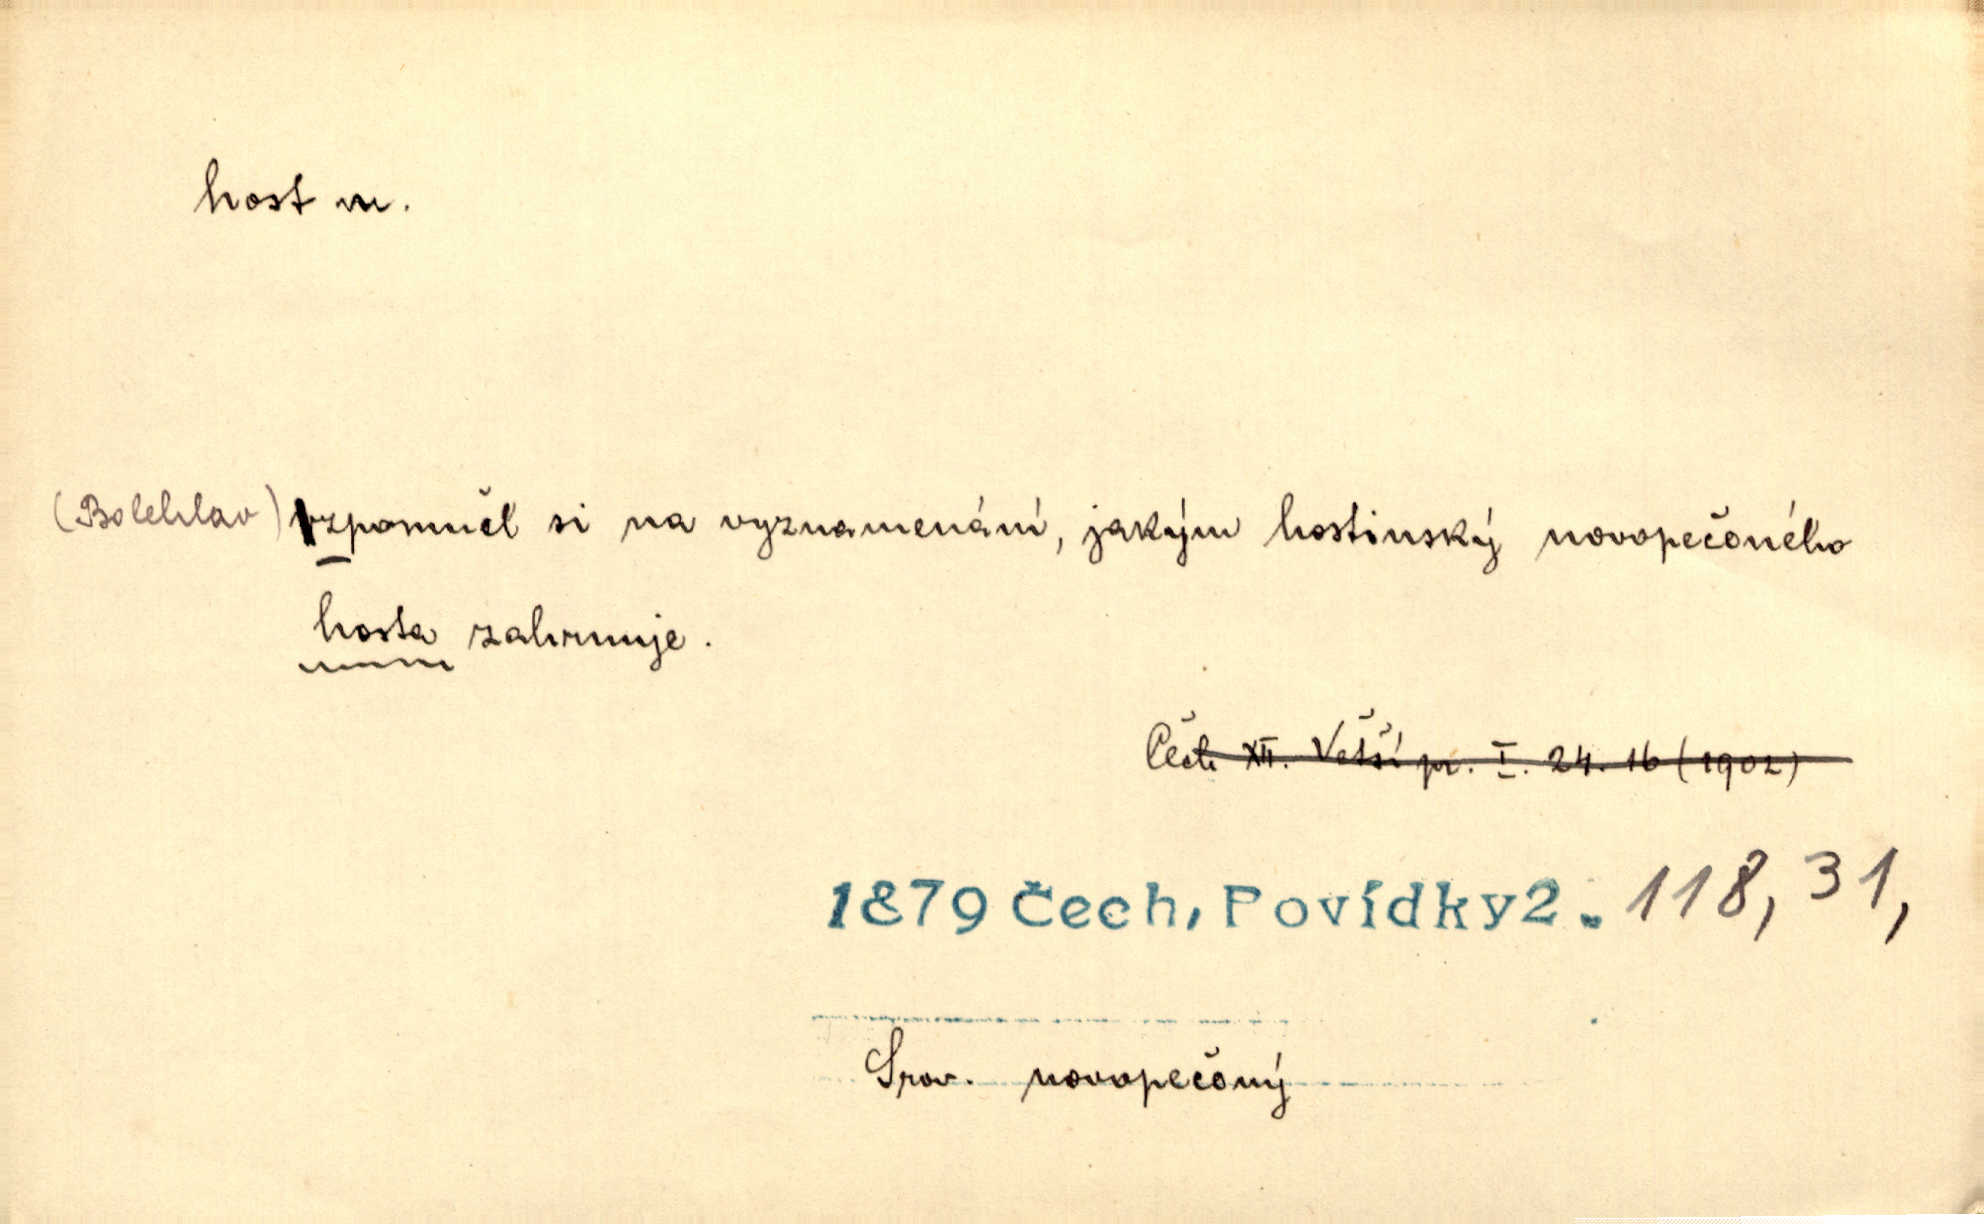 host m.
(Bolehlav) vzpomněl si na vyznamenání, jakým hostinský novopečeného
hosta zahrnuje.
Čech XII. Vetší pr. I. 24. 16 (1902)
1879 Čech, Povídky2. 118, 31,
Srov. novopečený